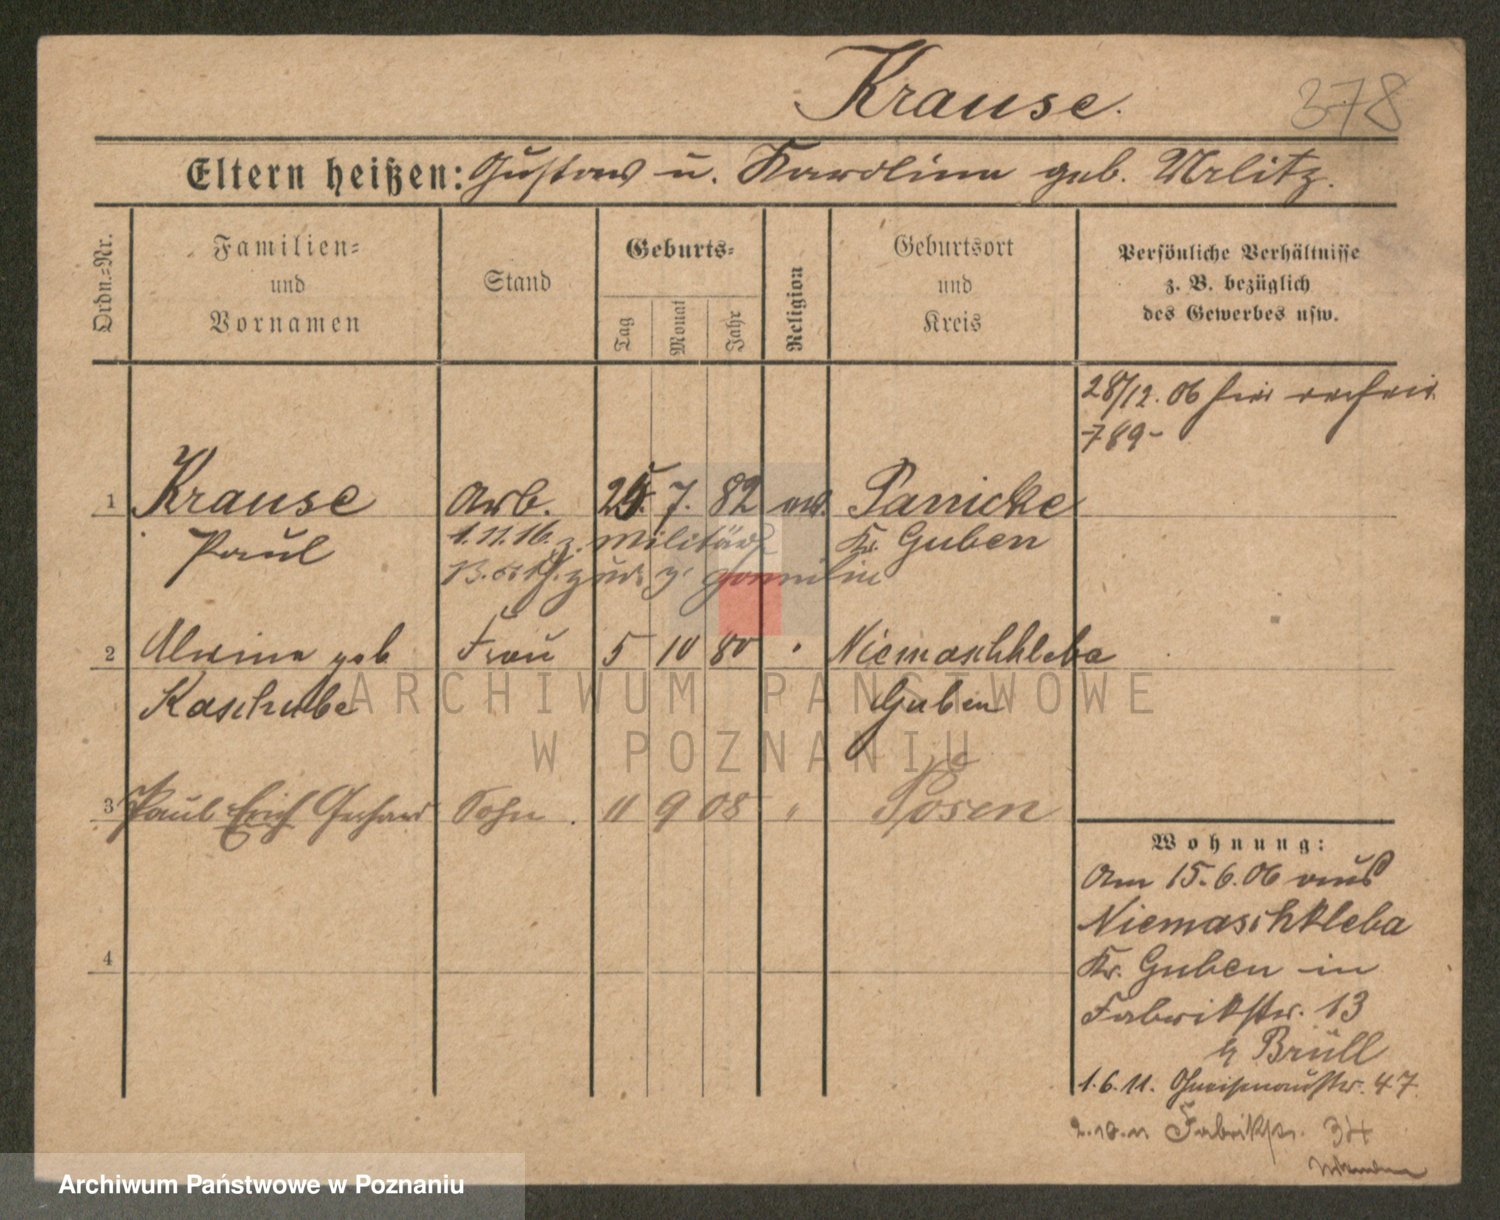 Krause.
378
Eltern heißen: Gustav u. Karoline geb. Urlitz.
Ordn.=Nr.
Familien=
und
Vornamen
Stand
Geburts=
Tag
Monat
Jahr
Religion
Geburtsort
und
Kreis
Persönliche Verhältnisse
z. B. bezüglich
des Gewerbes usw.
28/12. 06 hier
789-
1 Krause Arb. 25. 7. 82 ev. Pannicke
Paul 1.11.16. z. Militär Kr. Guben
zur. z. Familie
2 Alwine geb Frau 5 10 80 " Niemaschkleba
Kaschube Guben
3 Paul Erich Gerhard Sohn 11 9 08 " Posen
4
Wohnung:
Am 15.6.06 aus
Niemaschkleba
Kr. Guben in
Fabrikstr. 13
b Brüll
1.6.11. Gneisenaustr. 47.
Fabrikstr. 34
ARCHIWUM PAŃSTWOWE
W POZNANIU
Archiwum Państwowe w Poznaniu